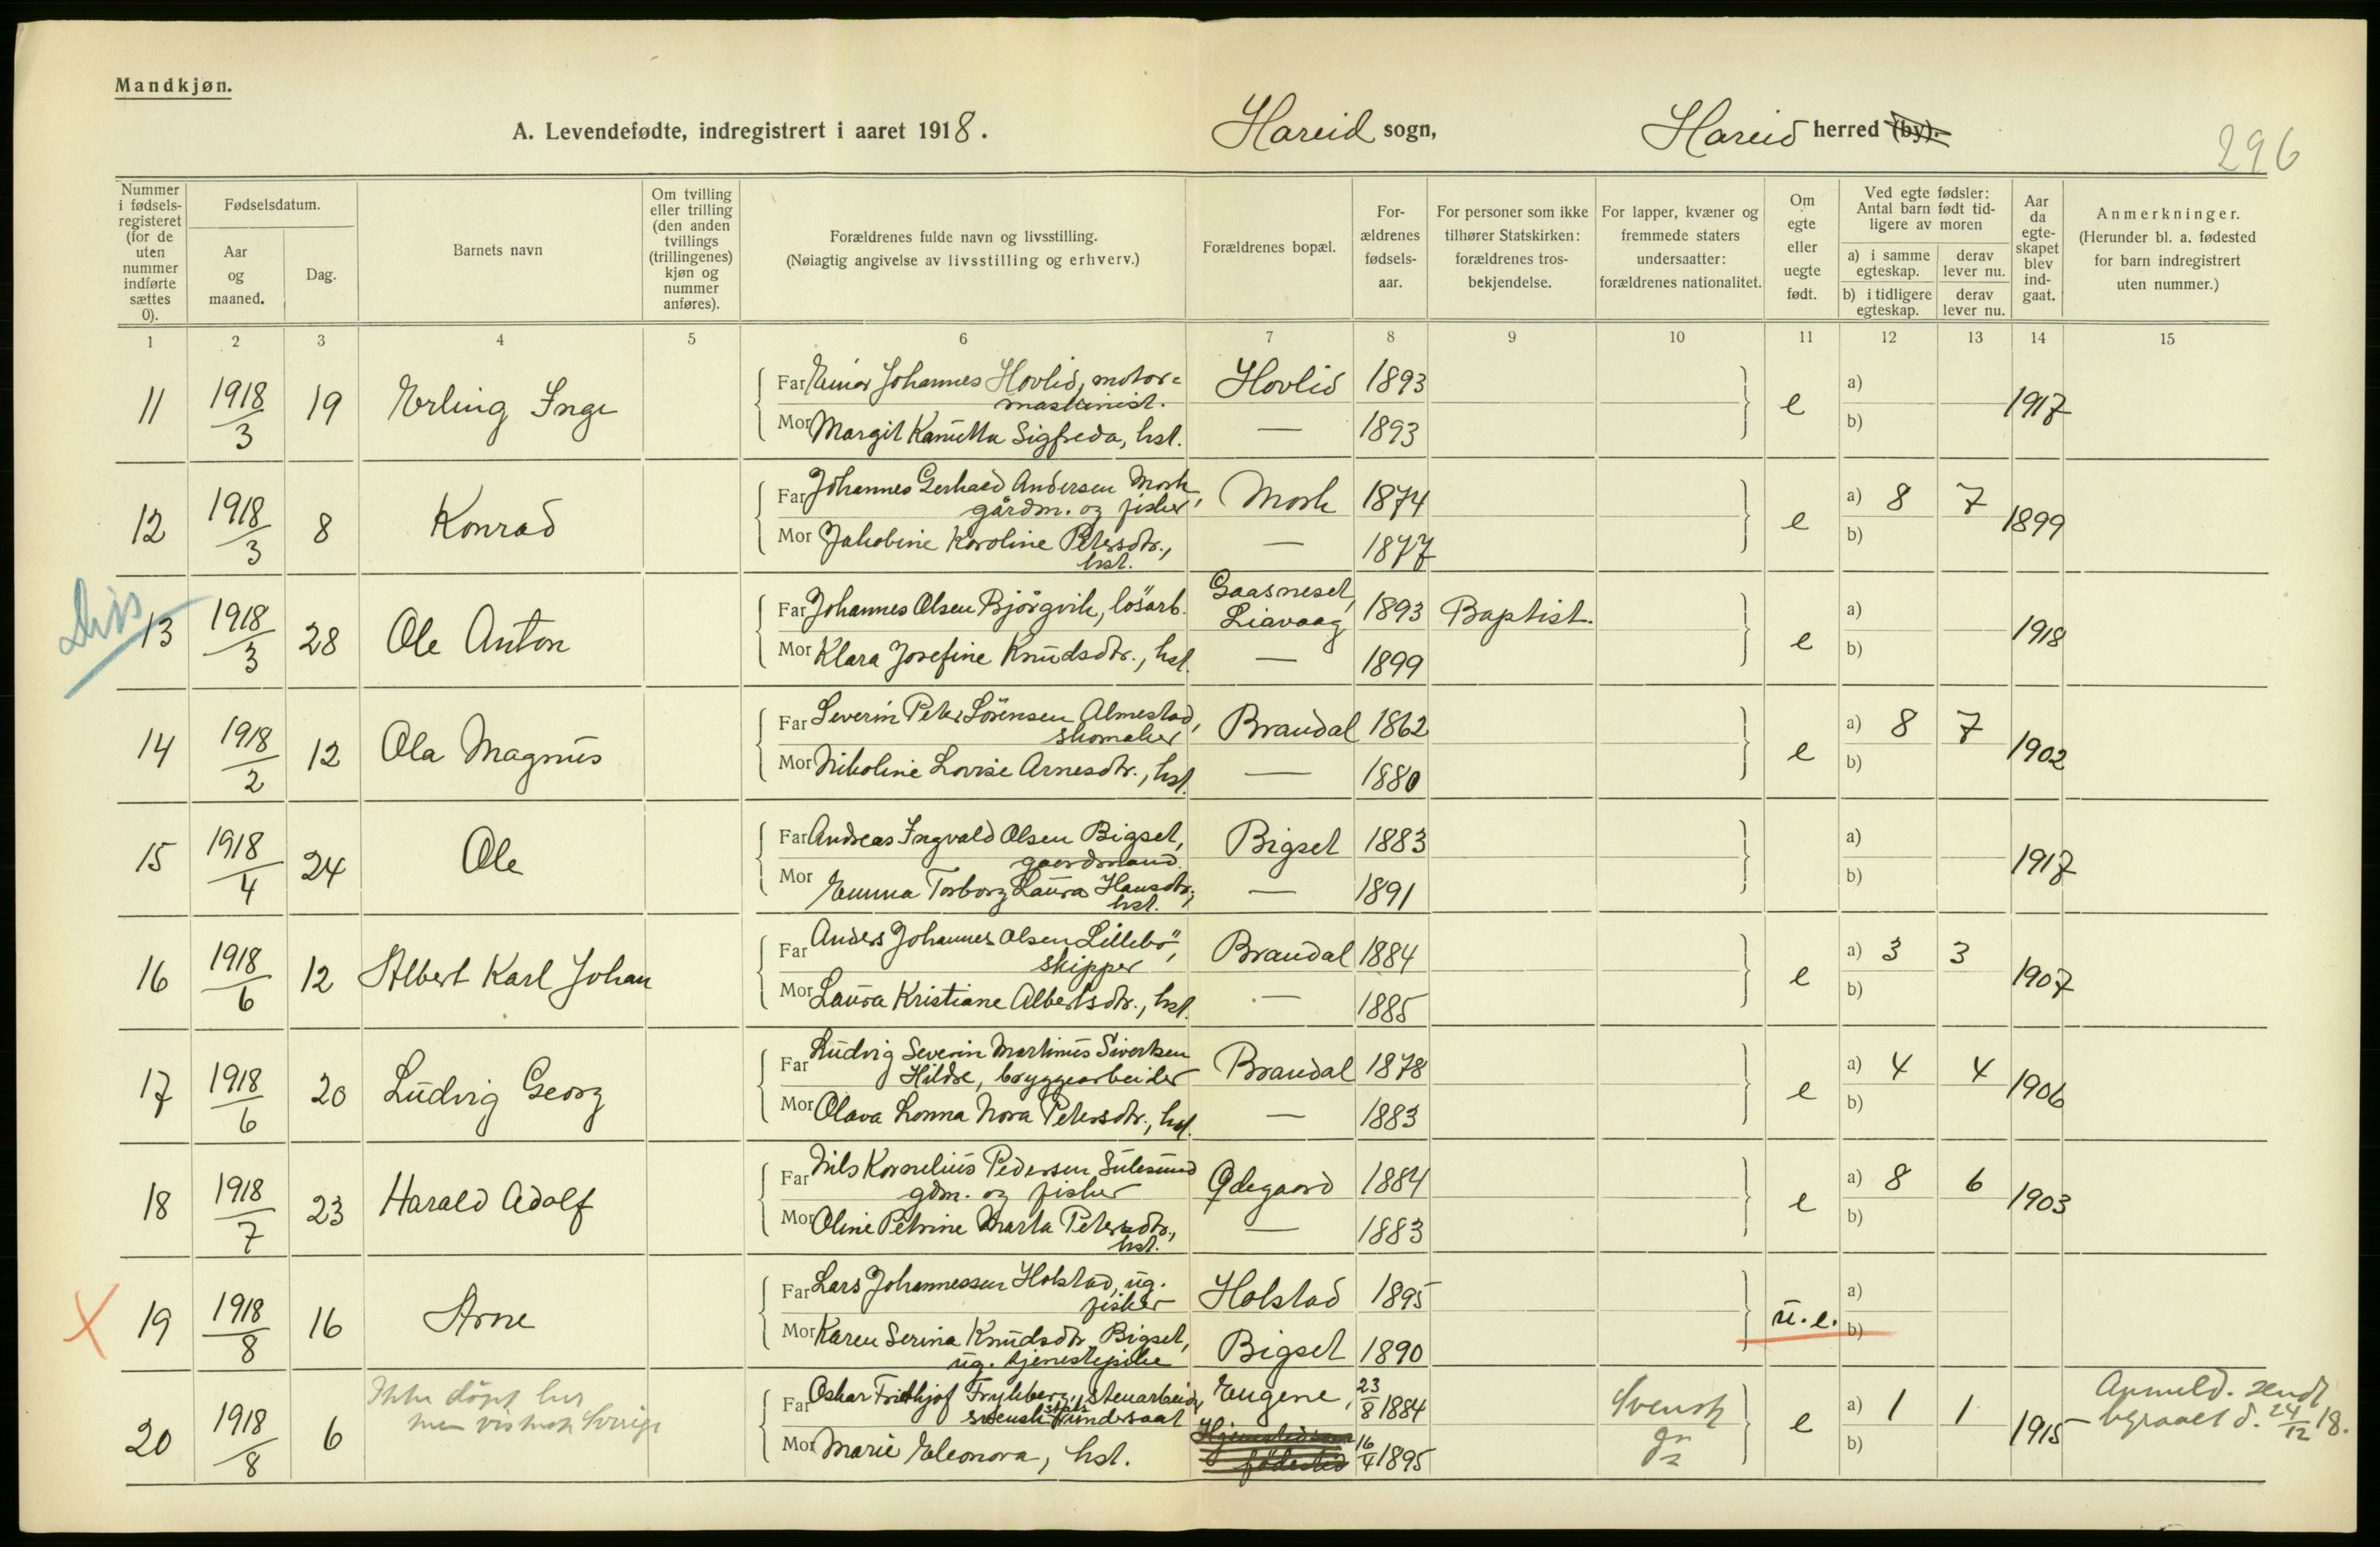 Mandkjøn.
A. Levendefødte, indregistrert i aaret 1918. Hareid sogn, Hareid herred (by).
296
Nummer i fødsels-registeret (for de uten nummer indførte sættes 0).
Fødselsdatum.
Aar og maaned.
Dag.
Barnets navn
Om tvilling eller trilling (den anden tvillings (trillingenes) kjøn og nummer anføres).
Forældrenes fulde navn og livsstilling.
(Nøiagtig angivelse av livsstilling og erhverv.)
Forældrenes bopæl.
For-ældrenes fødsels-aar.
For personer som ikke tilhører Statskirken: forældrenes tros-bekjendelse.
For lapper, kvæner og fremmede staters undersaatter: forældrenes nationalitet.
Om egte eller uegte født.
Ved egte fødsler: Antal barn født tid-ligere av moren
a) i samme egteskap. derav lever nu.
b) i tidligere egteskap. derav lever nu.
Aar da egte-skapet blev ind-gaat.
Anmerkninger.
(Herunder bl. a. fødested for barn indregistrert uten nummer.)
1 2 3 4 5 6 7 8 9 10 11 12 13 14 15
11 1918/3 19 Erling Inge Far Einar Johannes Hovlid, motor= Hovlid 1893 e a) — 1917
maskinist.
Mor Margit Kamilla Sigfreda, hst. — 1893 b)
12 1918/3 8 Konrad Far Johannes Gerhard Andersen Mork, Mork 1874 e a) 8 7 1899
gårdm. og fisker
Mor Jakobine Karoline Petersdtr., — 1877 b)
hst.
Divs
13 1918/3 28 Ole Anton Far Johannes Olsen Bjørgvik, løsarb. Gaasneset, Liavaag 1893 Baptist. e a) — 1918
Mor Klara Josefine Knudsdtr., hst. — 1899 b)
14 1918/2 12 Ola Magnus Far Severin Peter Sørensen Almestad, Brandal 1862 e a) 8 7 1902
skomaker
Mor Nikoline Lovise Arnesdtr., hst. — 1880 b)
15 1918/4 24 Ole Far Andreas Ingvald Olsen Bigset, Bigset 1883 a) — 1917
gaardmand.
Mor Emma Torborg Laura Hansdtr., — 1891 b)
hst.
16 1918/6 12 Albert Karl Johan Far Anders Johannes Olsen Lillebø, Brandal 1884 e a) 3 3 1907
skipper
Mor Laura Kristiane Albertsdtr., hst. — 1885 b)
17 1918/6 20 Ludvig Georg Far Ludvig Severin Martinus Sivertsen Brandal 1878 e a) 4 4 1906
Hildre, bryggearbeider
Mor Olava Lonna Nora Petersdtr., hst. — 1883 b)
18 1918/7 23 Harald Adolf Far Nils Kornelius Pedersen Sulesund Ødegaard 1884 e a) 8 6 1903
gdm. og fisker
Mor Oline Petrine Marta Petersdtr., — 1883 b)
hst.
X 19 1918/8 16 Arne Far Lars Johannessen Holstad, ug. Holstad 1895 u.e. a)
fisker
Mor Karen Serina Knudsdtr. Bigset, Bigset 1890 b)
ug. tjenestepike
20 1918/8 6 Ikke døpt her Far Oskar Fridthjof Frykberg, stenarbeider, Eugene, 23/8 1884 Svensk e a) 1 1 1915 Anmeld. sendt
men visnok Sverige svensk stats undersaat begraaet d. 24/12 18.
Mor Marie Eleonora, hst. Hjemsted som fødested 16/4 1895 b)